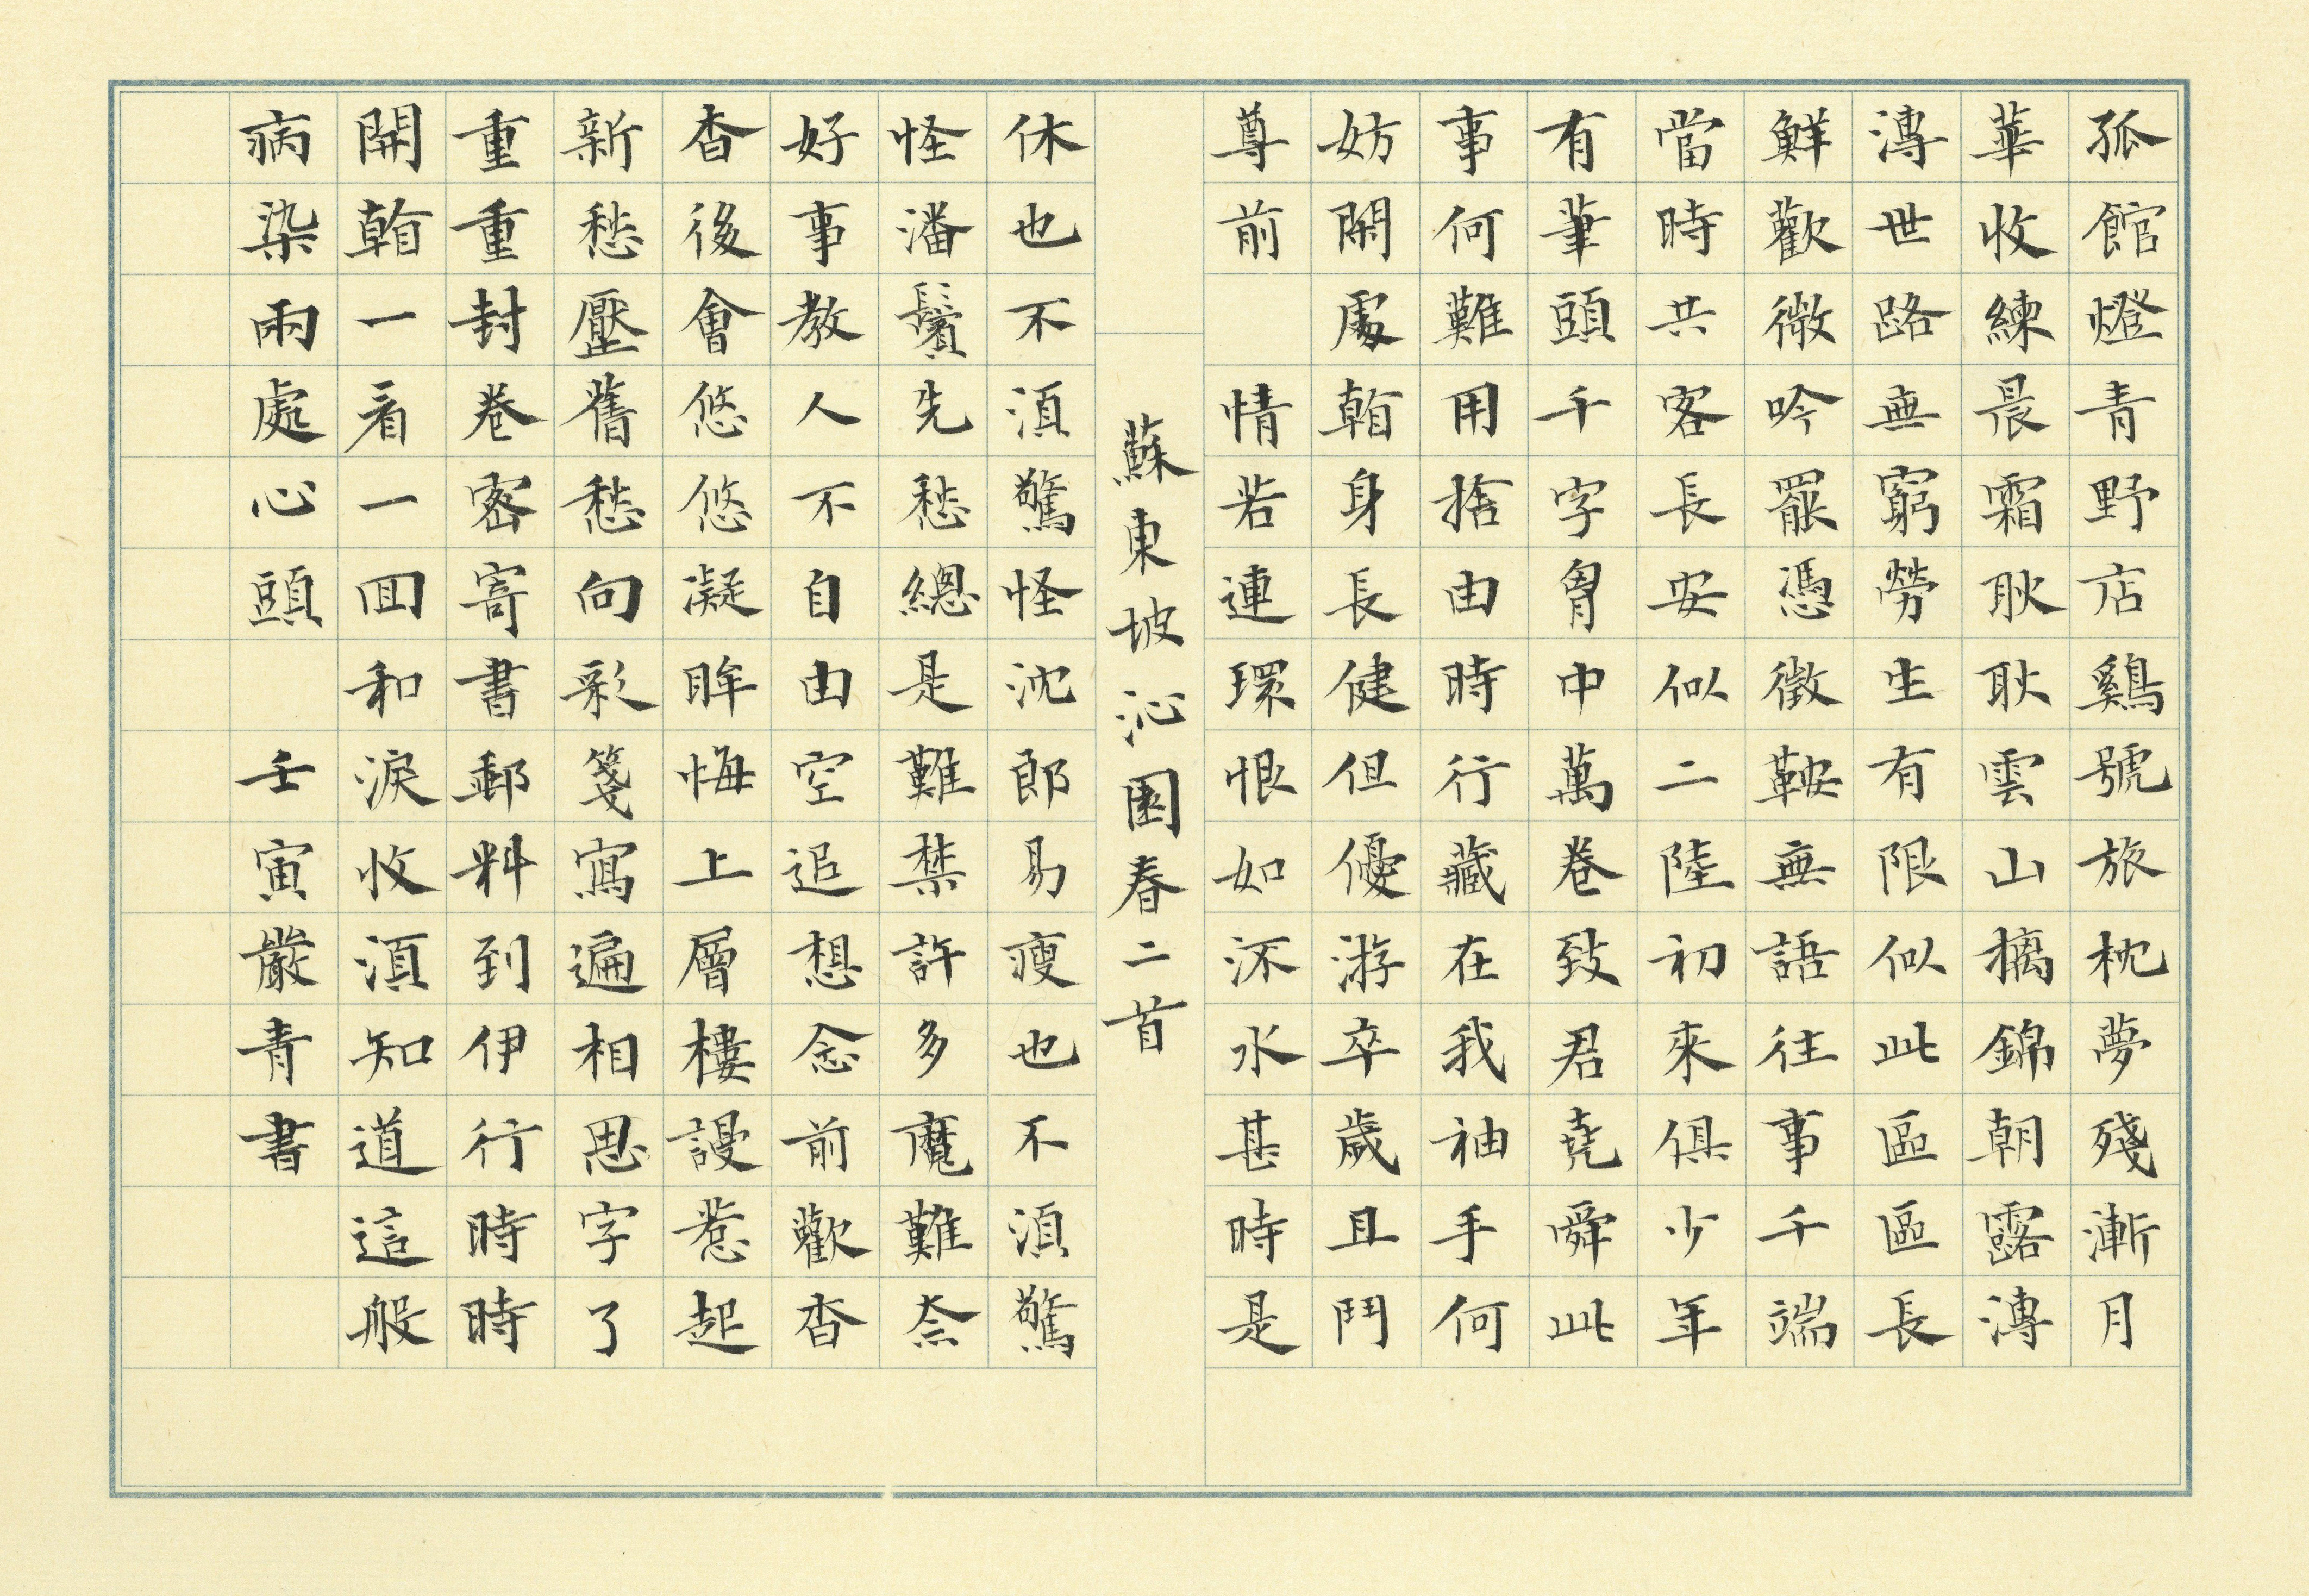 孤館燈青野店鷄號旅枕夢殘漸月
華收練晨霜耿耿雲山摛錦朝露漙
漙世路無窮勞生有限似此區區長
鮮歡微吟罷憑徵鞍無語往事千端
當時共客長安似二陸初來俱少年
有筆頭千字胷中萬卷致君堯舜此
事何難用捨由時行藏在我袖手何
妨閑處翰身長健但優游卒歲且鬥
尊前 情若連環恨如流水甚時是
蘇東坡沁園春二首
休也不須驚怪沈郎易瘦也不須驚
怪潘鬢先愁總是難禁許多魔難奈
好事教人不自由空追想念前歡杳
杳後會悠悠凝眸悔上層樓謾惹起
新愁壓舊愁向彩箋寫遍相思字了
重重封卷密寄書郵料到伊行時時
開翰一看一回和淚收須知道這般
病染兩處心頭 壬寅嚴青書